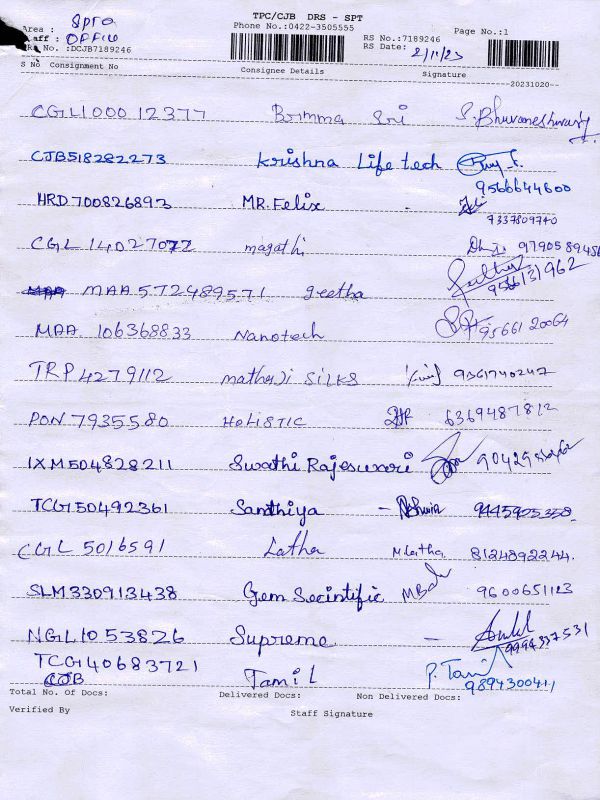 TPC/CJB DRS - SPT
Phone No.:0422-3505555
Area : Spro
Staff : OFFice
DRS No. :DCJB7189246
RS No.:7189246
RS Date: 2/11/23
Page No.:1
S No Consignment No Consignee Details Signature
20231020
CGL1000 12377 Brimma Sri S. Bhuvaneshwari
CJB518282273 Krishna Life tech 9566644600
HRD 700826893 MR. Felix 7337809740
CGL 14027072 magathi 9790589456
MAA 572489571 geetha 9566131962
MAA 106368833 Nanotech 9566120064
TRP 4279112 mathaji SILKS 9361740247
PON 7935580 HOLISTIC 6369487812
IXM504828211 Swathi Rajeswari
TCG150492361 Santhiya - 9445905358
CGL 5016591 Latha M Latha 8124892244.
SLM330913438 Gem Secintific 9600651123
NGL1053826 Supreme - 9994337531
TCG140683721 Tamil P. Tamil
CJB 9894300411
Total No. Of Docs: Delivered Docs: Non Delivered Docs:
Verified By Staff Signature